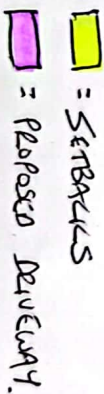 = SETBACKS
= PROPOSED DRIVEWAY.